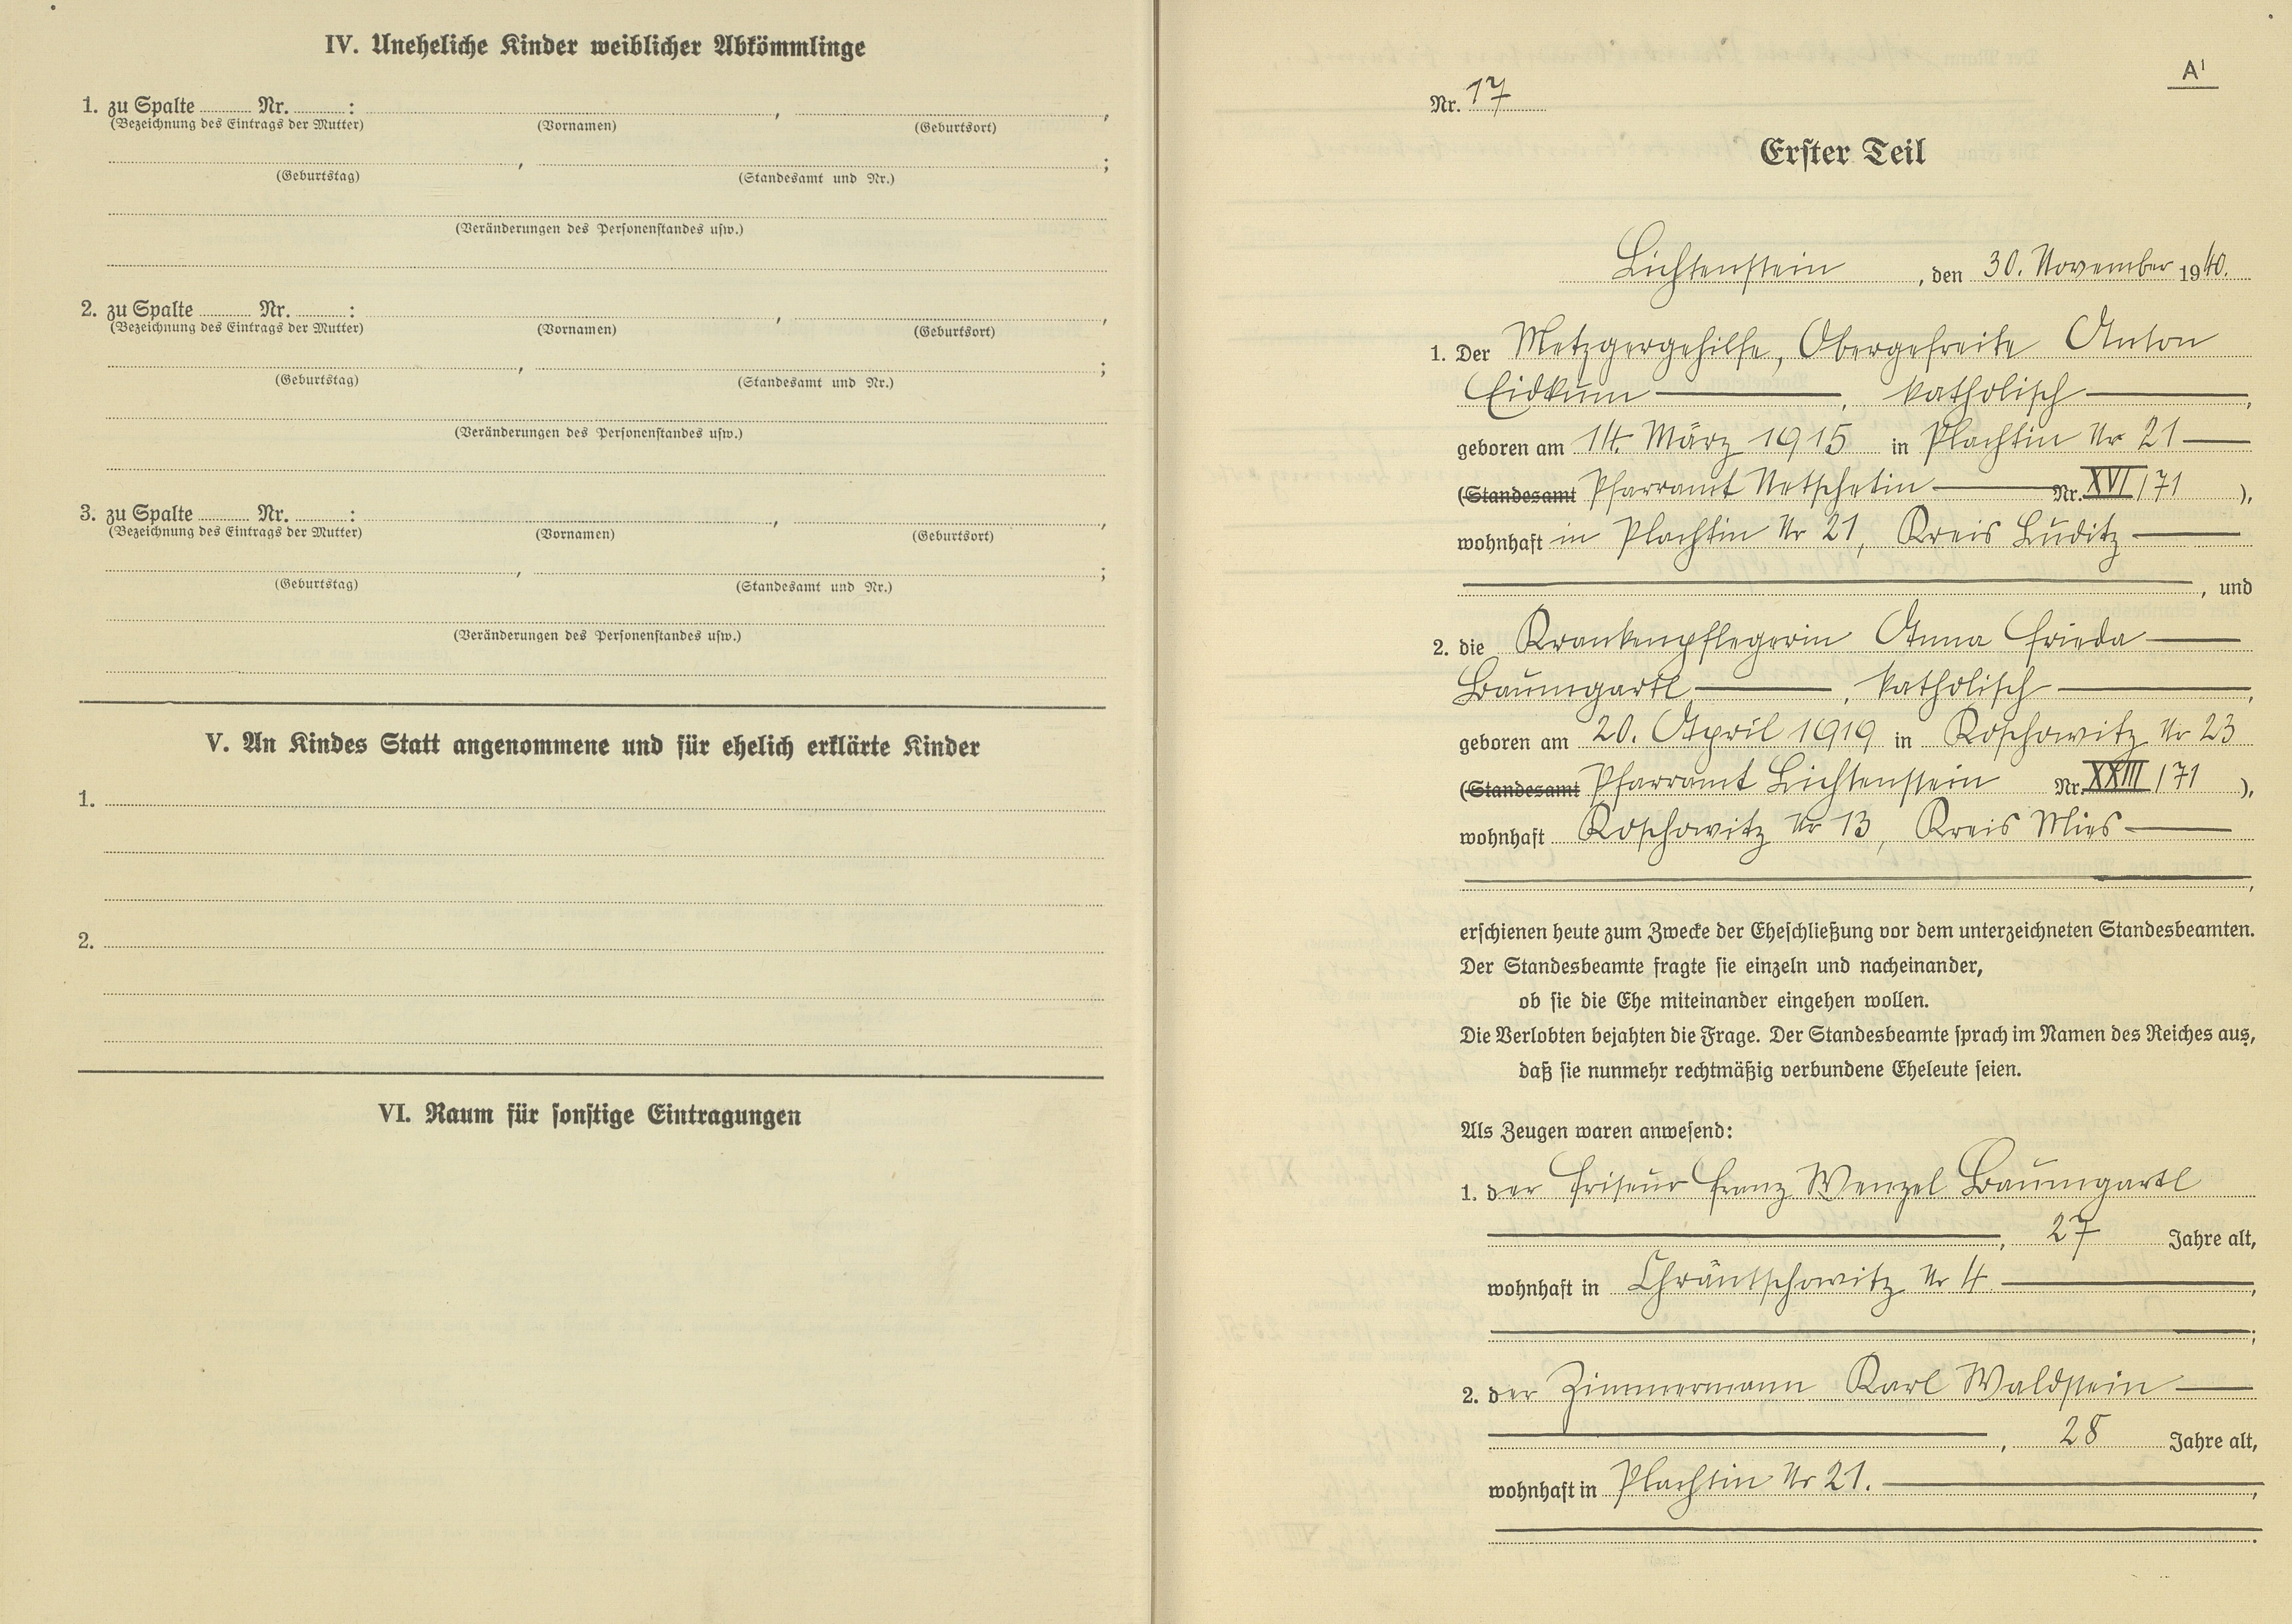 IV. Uneheliche Kinder weiblicher Abkömmlinge
1. zu Spalte ........ Nr. ........ :
(Bezeichnung des Eintrags der Mutter) (Vornamen) , (Geburtsort) ,
(Geburtstag) , (Standesamt und Nr.) ;
(Veränderungen des Personenstandes usw.)
2. zu Spalte ........ Nr. ........ :
(Bezeichnung des Eintrags der Mutter) (Vornamen) , (Geburtsort) ,
(Geburtstag) , (Standesamt und Nr.) ;
(Veränderungen des Personenstandes usw.)
3. zu Spalte ........ Nr. ........ :
(Bezeichnung des Eintrags der Mutter) (Vornamen) , (Geburtsort) ,
(Geburtstag) , (Standesamt und Nr.) ;
(Veränderungen des Personenstandes usw.)
V. An Kindes Statt angenommene und für ehelich erklärte Kinder
1.
2.
VI. Raum für sonstige Eintragungen
A¹
Nr. 17
Erster Teil
Lichtenstein, den 30. November 1940.
1. Der Metzgergehilfe, Obergefreite Anton
Eidkum, katholisch,
geboren am 14. März 1915 in Plachtin Nr 21
(Standesamt Pfarramt Netschetin Nr. XVI/171),
wohnhaft in Plachtin Nr 21, Kreis Luditz
, und
2. die Krankenpflegerin Anna Frieda
Baumgartl, katholisch,
geboren am 20. April 1919 in Roschowitz Nr 23
(Standesamt Pfarramt Lichtenstein Nr. XXIII/171),
wohnhaft Roschowitz Nr 13, Kreis Mies
,
erschienen heute zum Zwecke der Eheschließung vor dem unterzeichneten Standesbeamten.
Der Standesbeamte fragte sie einzeln und nacheinander,
ob sie die Ehe miteinander eingehen wollen.
Die Verlobten bejahten die Frage. Der Standesbeamte sprach im Namen des Reiches aus,
daß sie nunmehr rechtmäßig verbundene Eheleute seien.
Als Zeugen waren anwesend:
1. der Friseur Franz Wenzel Baumgartl
, 27 Jahre alt,
wohnhaft in Chrantschowitz Nr 4,
;
2. der Zimmermann Karl Waldstein
, 28 Jahre alt,
wohnhaft in Plachtin Nr 21.,
.